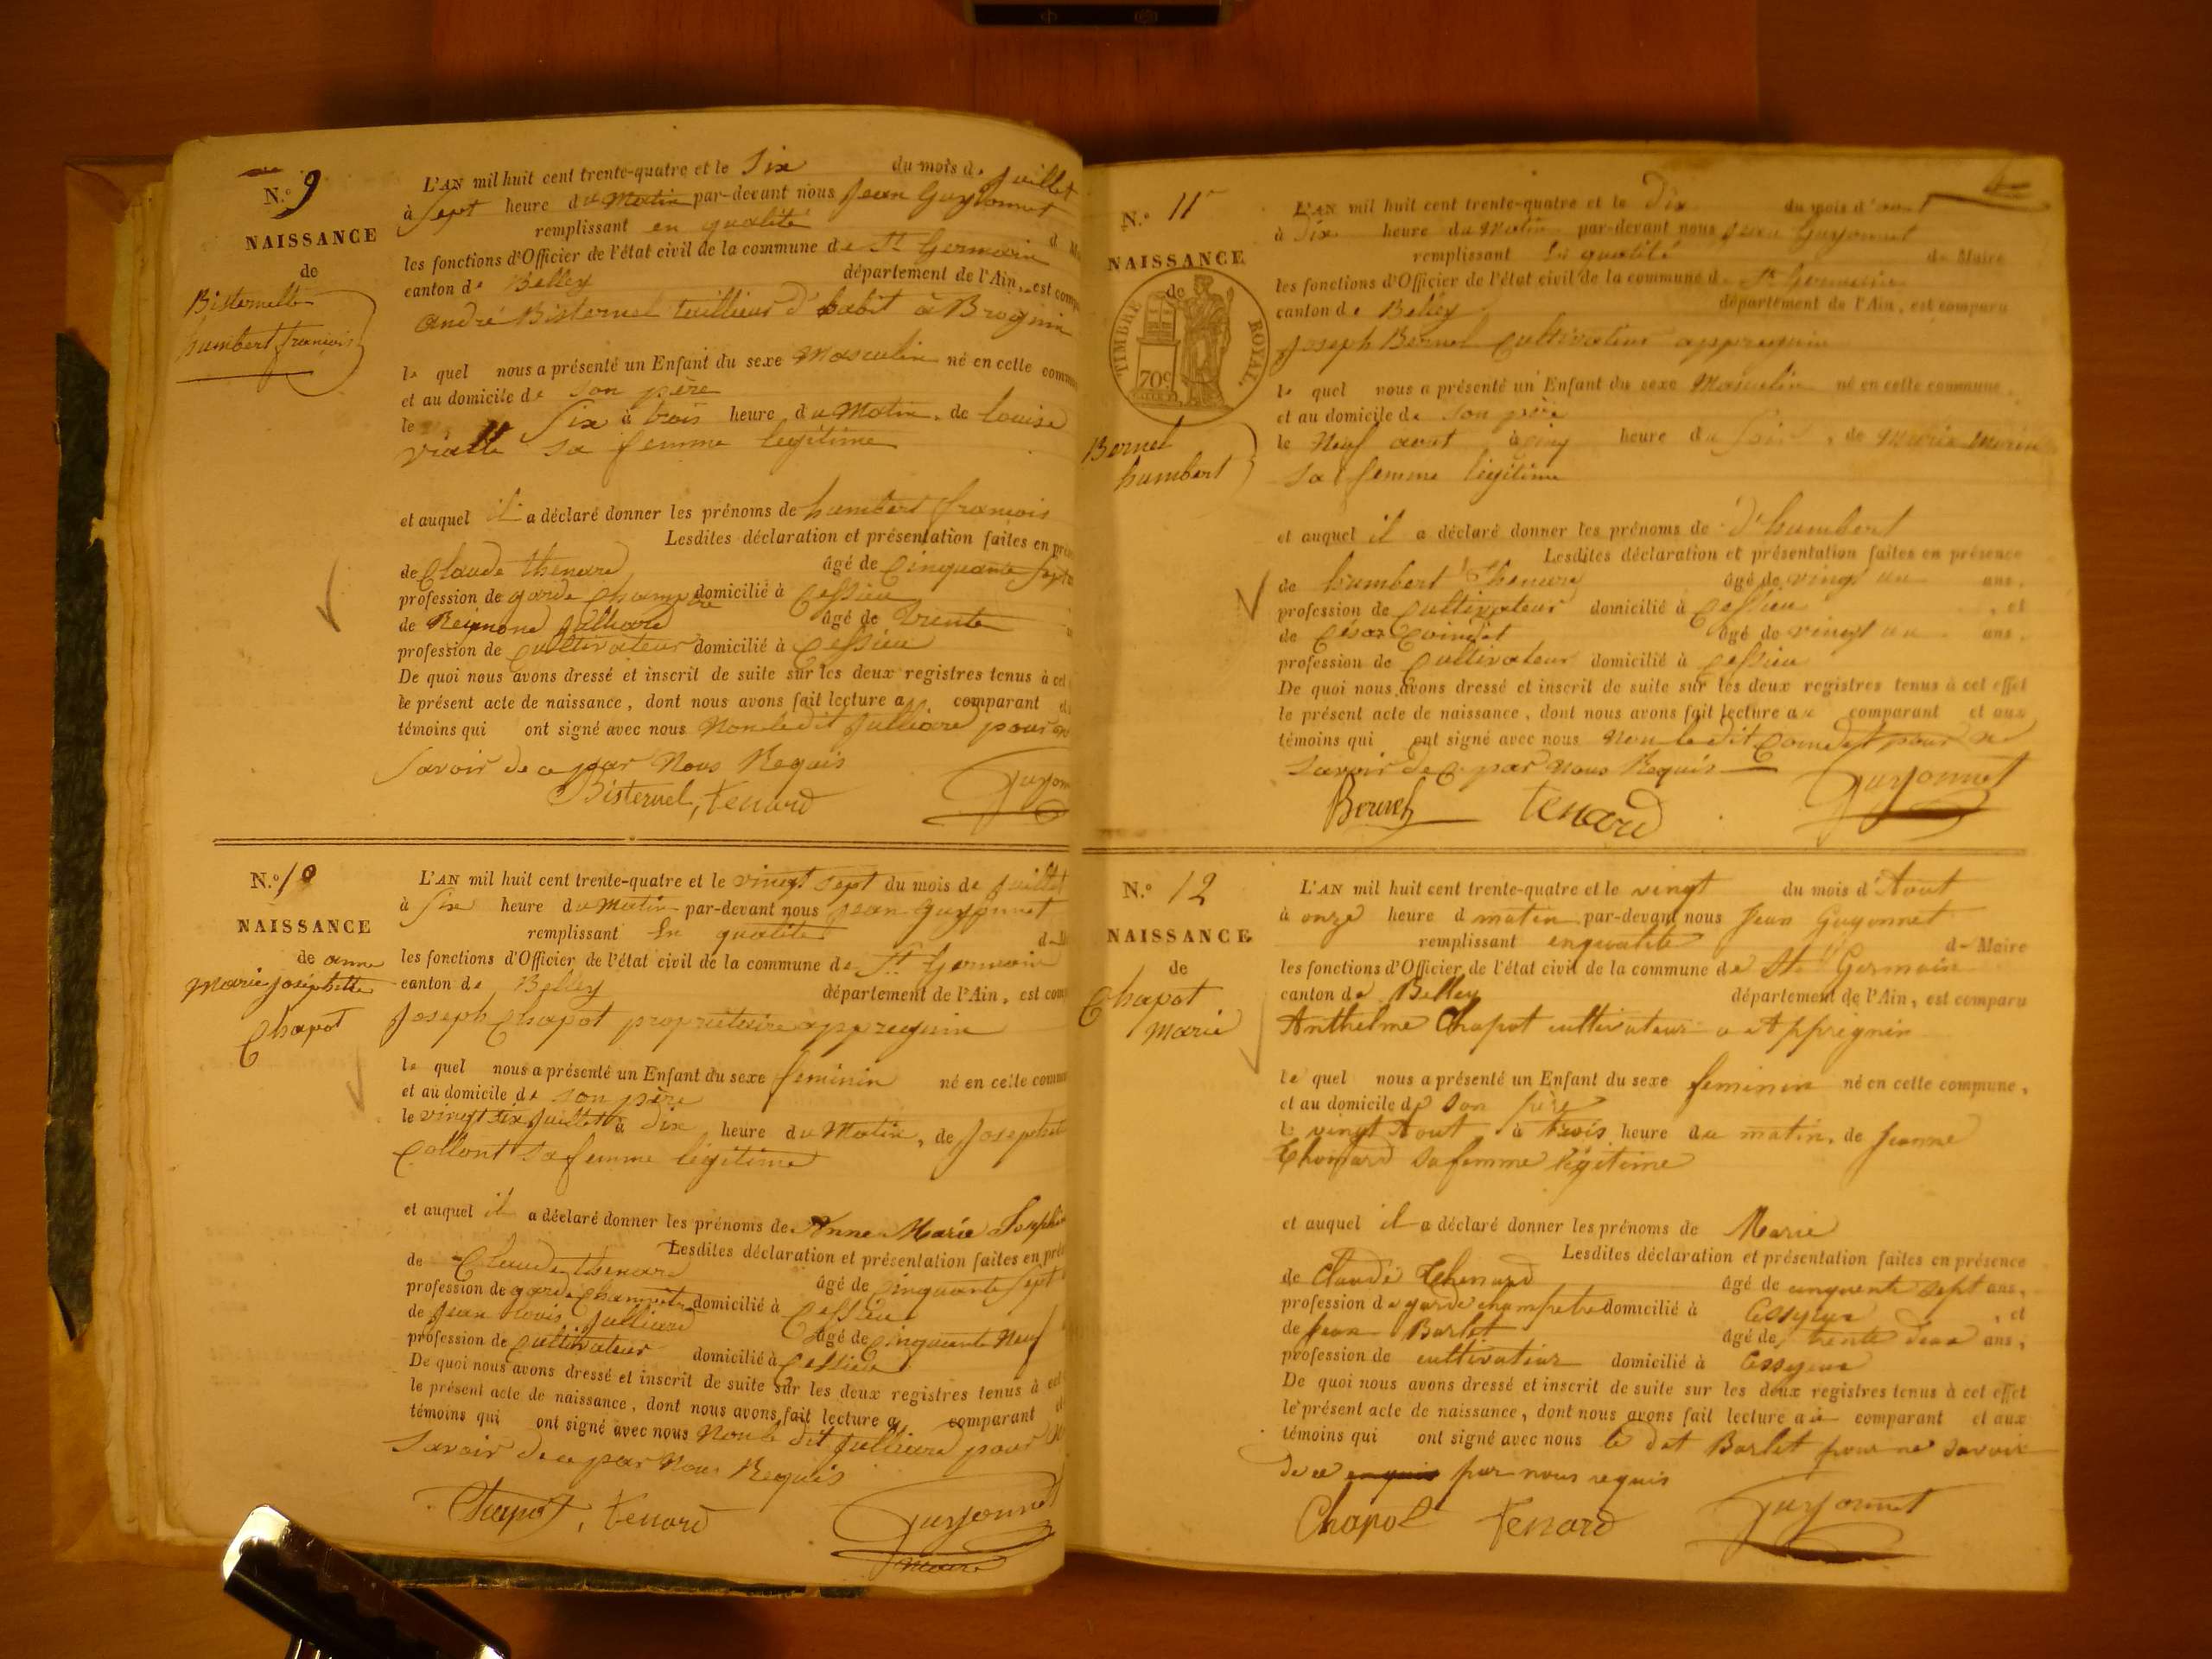 N.o 9
NAISSANCE
de
Bisternelle
humbert francois
L'AN mil huit cent trente-quatre et le Six du mois de Juillet
à Sept heure du Matin par-devant nous Jean Guyonnet
remplissant en qualité d
les fonctions d'Officier de l'état civil de la commune de St Germain
canton de Belley département de l'Ain, est comp
andré Bisternel taillieur d'habit à Brognin
le quel nous a présenté un Enfant du sexe Masculin né en cette comm
et au domicile de son père
le Six à trois heure du Matin, de louise
vialle sa femme legitime
et auquel il a déclaré donner les prénoms de humbert francois
Lesdites déclaration et présentation faites en pré
de Claude thenard âgé de Cinquante Sept
profession de garde Champetre domicilié à Cessieu
de Reimond Julliard âgé de trente
profession de Cultivateur domicilié à Cessieu
De quoi nous avons dressé et inscrit de suite sur les deux registres tenus à cet
le présent acte de naissance, dont nous avons fait lecture au comparant et
témoins qui ont signé avec nous Non le dit Julliard pour ne
Savoir de ce par Nous Requis
Bisternel, tenard Guyonn
N.o 10
NAISSANCE
de anne
marie josephette
Chapot
L'AN mil huit cent trente-quatre et le vingt sept du mois de Juillet
à Six heure du Matin par-devant nous jean guyonnet
remplissant En qualité d
les fonctions d'Officier de l'état civil de la commune de St Germain
canton de Belley département de l'Ain, est com
Joseph Chapot propriétaire appregnin
le quel nous a présenté un Enfant du sexe feminin né en cette comm
et au domicile de son père
le vingt six Juillet à dix heure du Matin, de Joseph
Collont sa femme legitime
et auquel il a déclaré donner les prénoms de Anne Marie Joseph
Lesdites déclaration et présentation faites en pré
de Claude thenard âgé de Cinquante Sept
profession de garde Champetre domicilié à Cessieu
de Jean louis Julliard âgé de Cinquante Neuf
profession de Cultivateur domicilié à Cessieu
De quoi nous avons dressé et inscrit de suite sur les deux registres tenus à cet
le présent acte de naissance, dont nous avons fait lecture au comparant et
témoins qui ont signé avec nous Non le dit Julliard pour
Savoir de ce par Nous Requis
Chapot, tenard Guyonnet
maire
N.o 11
NAISSANCE
de
TIMBRE ROYAL
70c
Bernel
humbert
L'AN mil huit cent trente-quatre et le Dix du mois d'aout
à Six heure du Matin par-devant nous Jean Guyonnet
remplissant En qualité de Maire
les fonctions d'Officier de l'état civil de la commune de St Germain
canton de Belley département de l'Ain, est comparu
Joseph Bernel Cultivateur appregnin
le quel nous a présenté un Enfant du sexe Masculin né en cette commune,
et au domicile de son père
le Neuf aout à cinq heure du Soir, de Marie
sa femme legitime
et auquel il a déclaré donner les prénoms de d'humbert
Lesdites déclaration et présentation faites en présence
de humbert Thenard âgé de vingt un ans,
profession de Cultivateur domicilié à Cessieu, et
de César Coindet âgé de vingt un ans,
profession de Cultivateur domicilié à Cessieu
De quoi nous avons dressé et inscrit de suite sur les deux registres tenus à cet effet
le présent acte de naissance, dont nous avons fait lecture au comparant et aux
témoins qui ont signé avec nous Non le dit Coindet pour ne
Savoir de ce par Nous Requis
Bernel tenard Guyonnet
N.o 12
NAISSANCE
de
Chapot
Marie
L'AN mil huit cent trente-quatre et le vingt du mois d'Aout
à onze heure d matin par-devant nous Jean Guyonnet
remplissant enqualité de Maire
les fonctions d'Officier de l'état civil de la commune de St Germain
canton de Belley département de l'Ain, est comparu
Anthelme Chapot cultivateur a Appregnin
le quel nous a présenté un Enfant du sexe feminin né en cette commune,
et au domicile de son père
le vingt Aout à trois heure du matin, de Jeanne
Thomard sa femme légitime
et auquel il a déclaré donner les prénoms de Marie
Lesdites déclaration et présentation faites en présence
de Claude Thenard âgé de cinquente sept ans,
profession de garde champetre domicilié à Essyeux, et
de Jean Barlet âgé de trente deux ans,
profession de cultivateur domicilié à Essyeux
De quoi nous avons dressé et inscrit de suite sur les deux registres tenus à cet effet
le présent acte de naissance, dont nous avons fait lecture au comparant et aux
témoins qui ont signé avec nous le dit Barlet pour ne savoir
de ce par nous requis
Chapot tenard Guyonnet